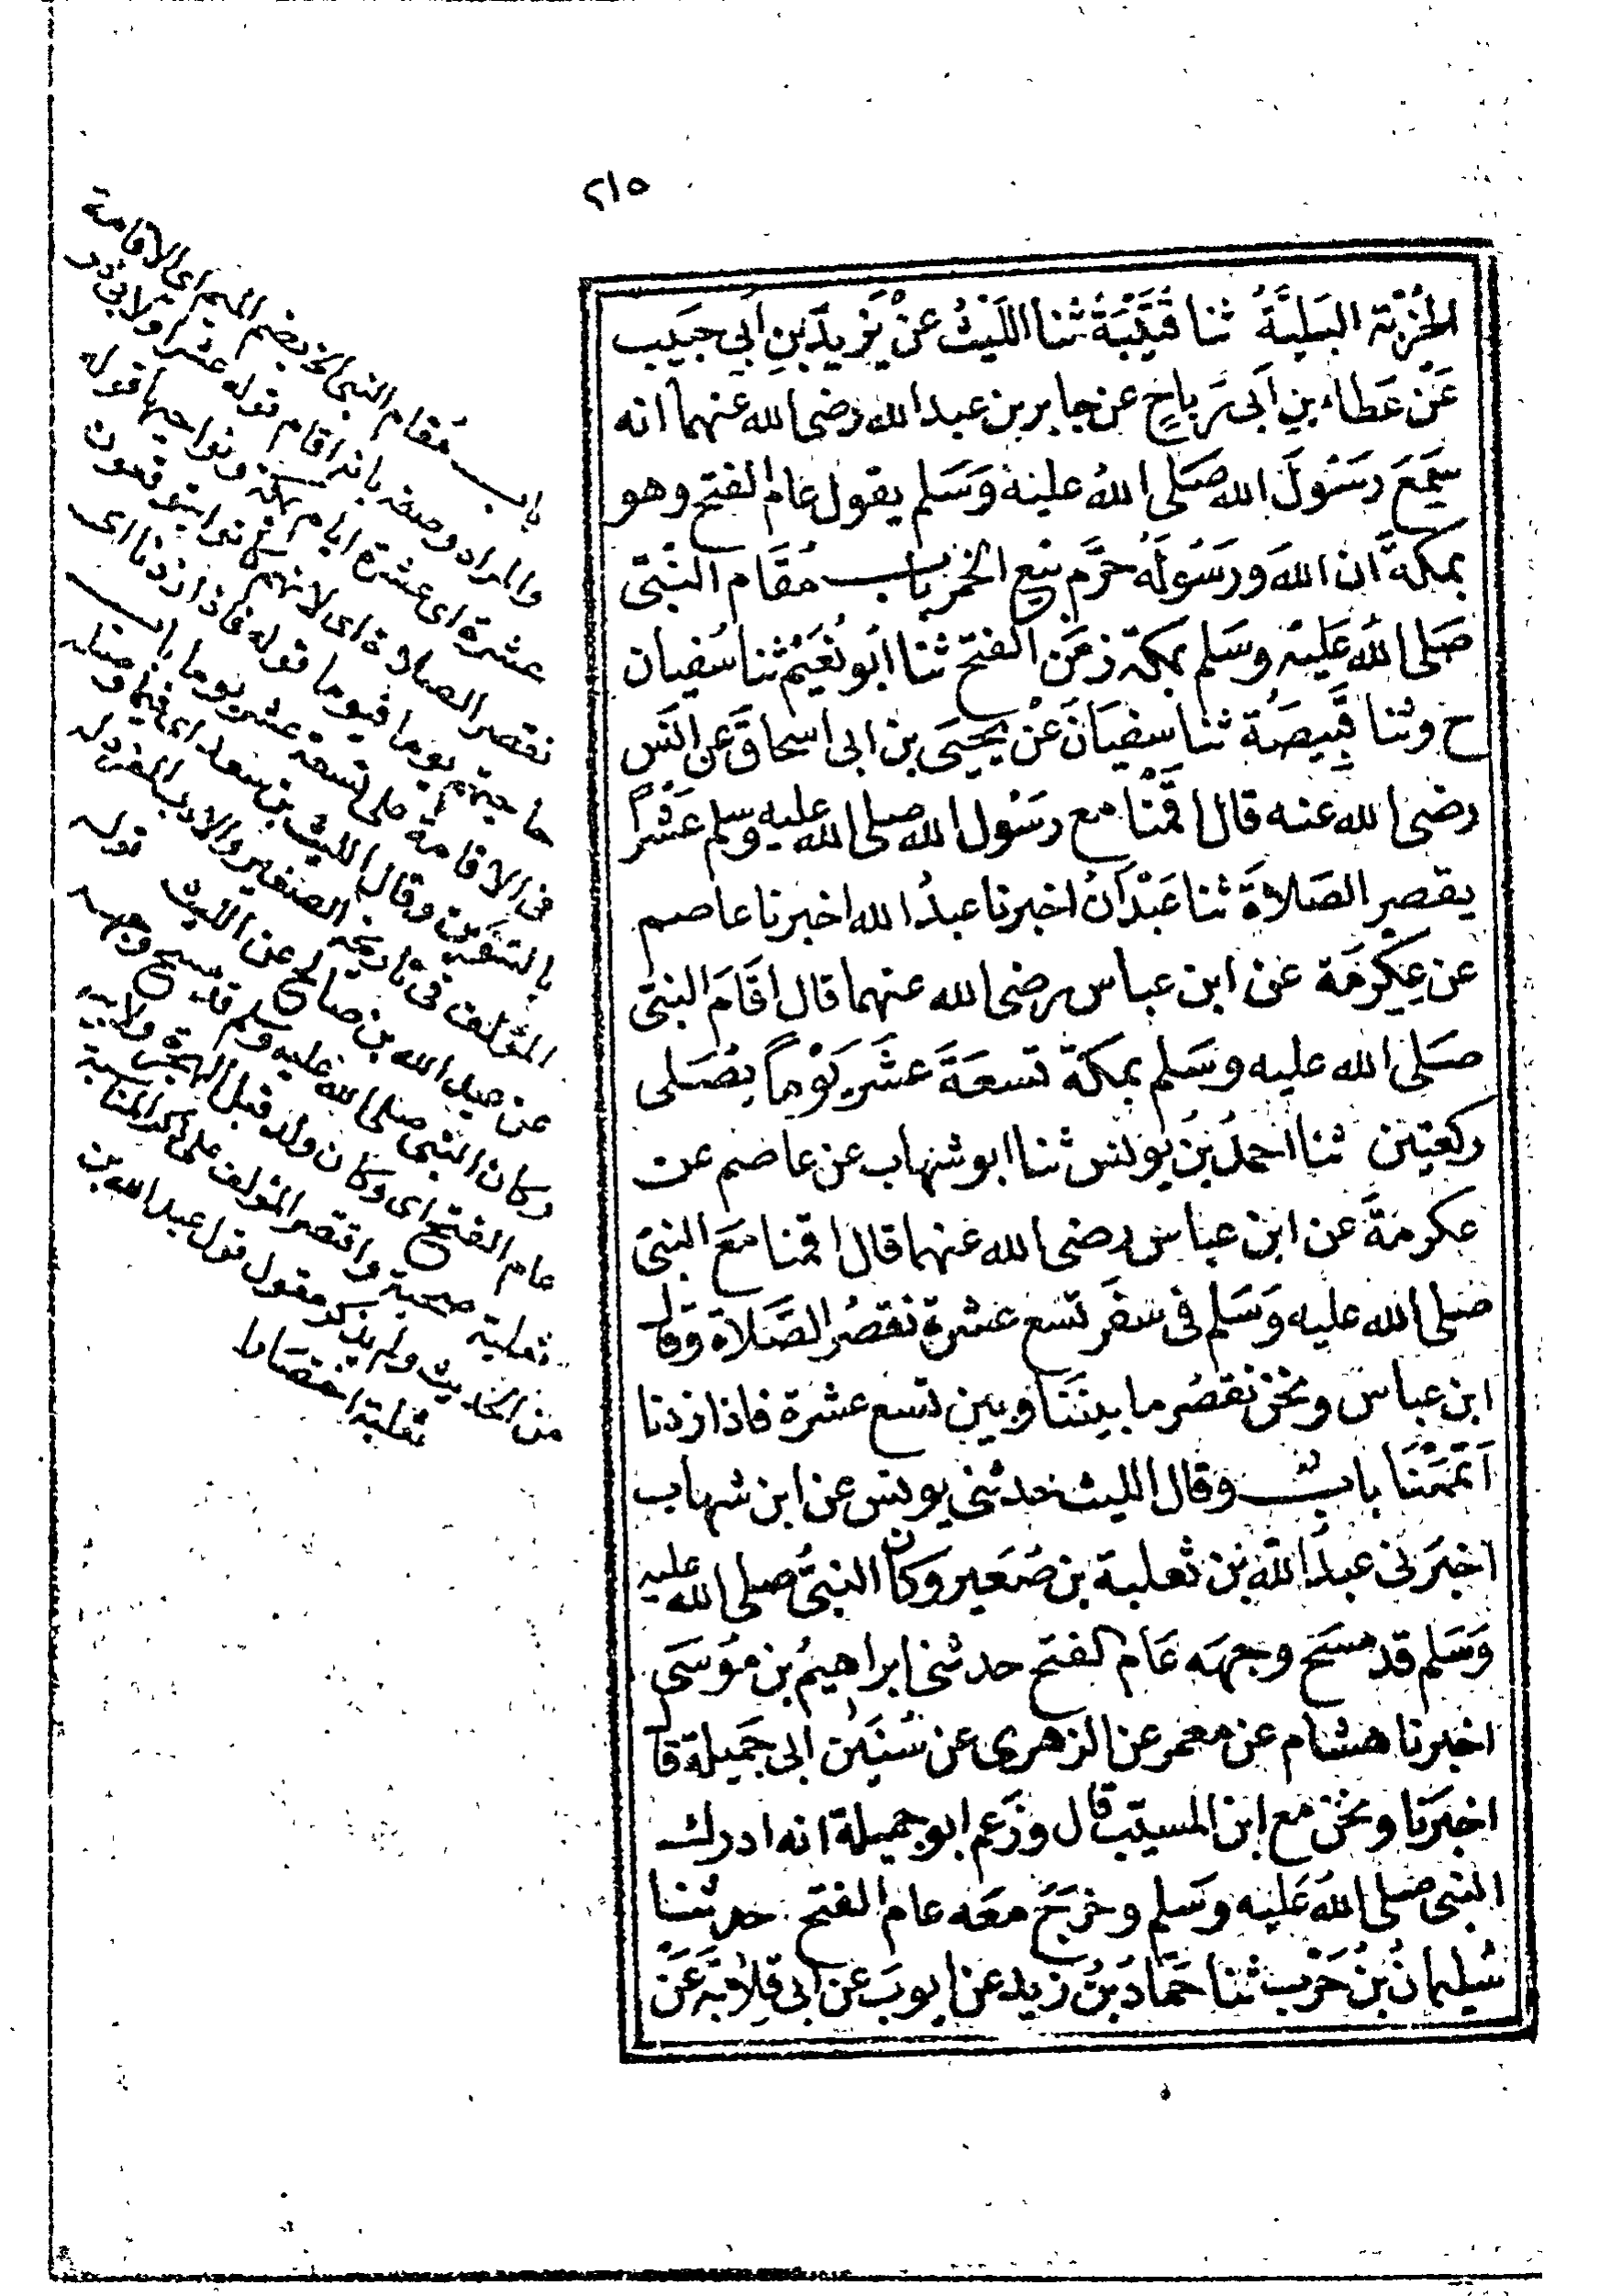 ٢١٥
الخِزْيَةُ البَلِيَّةُ ثنا قُتَيْبَةُ ثنا اللَّيْثُ عَنْ يَزِيدَ بنِ أَبي حَبِيب
عَنْ عَطاء بنِ أَبي رَبَاحٍ عن جابر بن عبد الله رضى الله عنهما انه
سَمِعَ رَسُولَ الله صَلى اللهُ عليه وَسَلم يقول عام الفتح وهو
بمكةَ ان اللهَ ورَسُولَهُ حرَّم بَيْع الخمر باب مُقَام النَّبى
صَلى اللهُ عَليه وسَلم بمكة زمَن الفتح ثنا ابُو نُعَيْم ثنا سُفيان
ح وثنا قَبِيصَةُ ثنا سفيَان عَنْ يَحْيَى بن ابى اسحاقَ عن انَس
رضى الله عنه قال اقمْنا مع رسُول الله صلى الله عليه وسلم عَشْرًا
يقصر الصَلاةَ ثنا عَبْدَانُ اخبرنا عبدُ الله اخبرنا عاصم
عن عِكْرمَة عَن ابن عباس رضى الله عنهما قال اقَامَ النبىّ
صَلى الله عليه وسَلم بمكةَ تسعَةَ عشَر يَوْماً يُصَلى
ركعتين ثنا احمدُ بنُ يُونس ثنا ابو شهاب عن عاصم عن
عكرمَةَ عَن ابن عباس رضى الله عنهما قال اقمنا مَعَ النبى
صَلى الله عليه وَسَلم فى سَفَر تسع عشرة نقصُر الصَّلاة وَقال
ابن عباس ونحن نقصُر ما بينَنَا وبين تسع عشرة فاذا زدنا
أتمَمْنَا بابٌ وقال الليث حدثنى يونس عن ابن شهاب
اخبَرنى عبدُ الله بن ثعلبة بن صُعَير وكان النبىُّ صلى الله عليه
وَسَلم قد مسَح وجهَه عَام الفتح حدثنى ابراهيمُ بن مُوسَى
اخبرنا هشام عن معمر عن الزهرى عن سُنَين ابى جَميلة قال
اخبَرَنا ونحن مع ابن المسيّب قال وزَعم ابو جميلة انه ادرك
النبى صَلى اللهُ عَليه وسَلم وخرَجَ معَه عام الفتح حدثنا
سُليمانُ بنُ حَرْب ثنا حَمَّادُ بنُ زيد عن ايوبَ عن ابى قِلابَة عَن
باب مُقام النبى الخ بضم الميم اى الاقامة
والمراد وصفه بانه اقام قوله عشرا ولابى ذر
عشرة اى عشرة ايام بمكة ونواحيها قوله
نقصر الصلاة اى لانهم كانوا يتوقعون
حاجتهم يوما فيوما قوله فاذا زدنا اى
فى الاقامة على تسعة عشر يوما باب
بالتنوين وقال الليث بن سعد اى فيما وصله
المؤلف فى تاريخه الصغير والادب المفرد له
عن عبد الله بن صالح عن الليث قوله
وكان النبى صلى الله عليه وسلم قد مسح وجهه
عام الفتح اى وكان ولد قبل الهجرة ولابيه
ثعلبة صحبة واقتصر المؤلف على ذكر المناسبة
من الحديث ولم يذكر مقول قول عبد الله بن
ثعلبة اختصارا